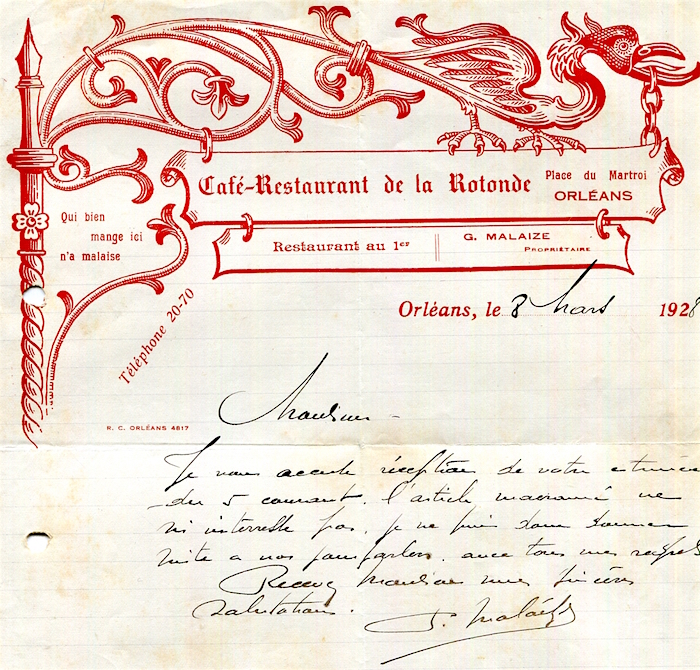 Café-Restaurant de la Rotonde
Place du Martroi
ORLÉANS
Restaurant au 1er
G. MALAIZE
PROPRIÉTAIRE
Qui bien
mange ici
n'a malaise
Téléphone 20-70
R. C. ORLÉANS 4817
Orléans, le 8 Mars 1928
Monsieur
Je vous accuse réception de votre
du 5 courant. l'article ne
m'interresse pas, je ne puis donc donner
suite a nos pourparlers. avec tous mes
Recevez Monsieur mes sincères
Salutations.